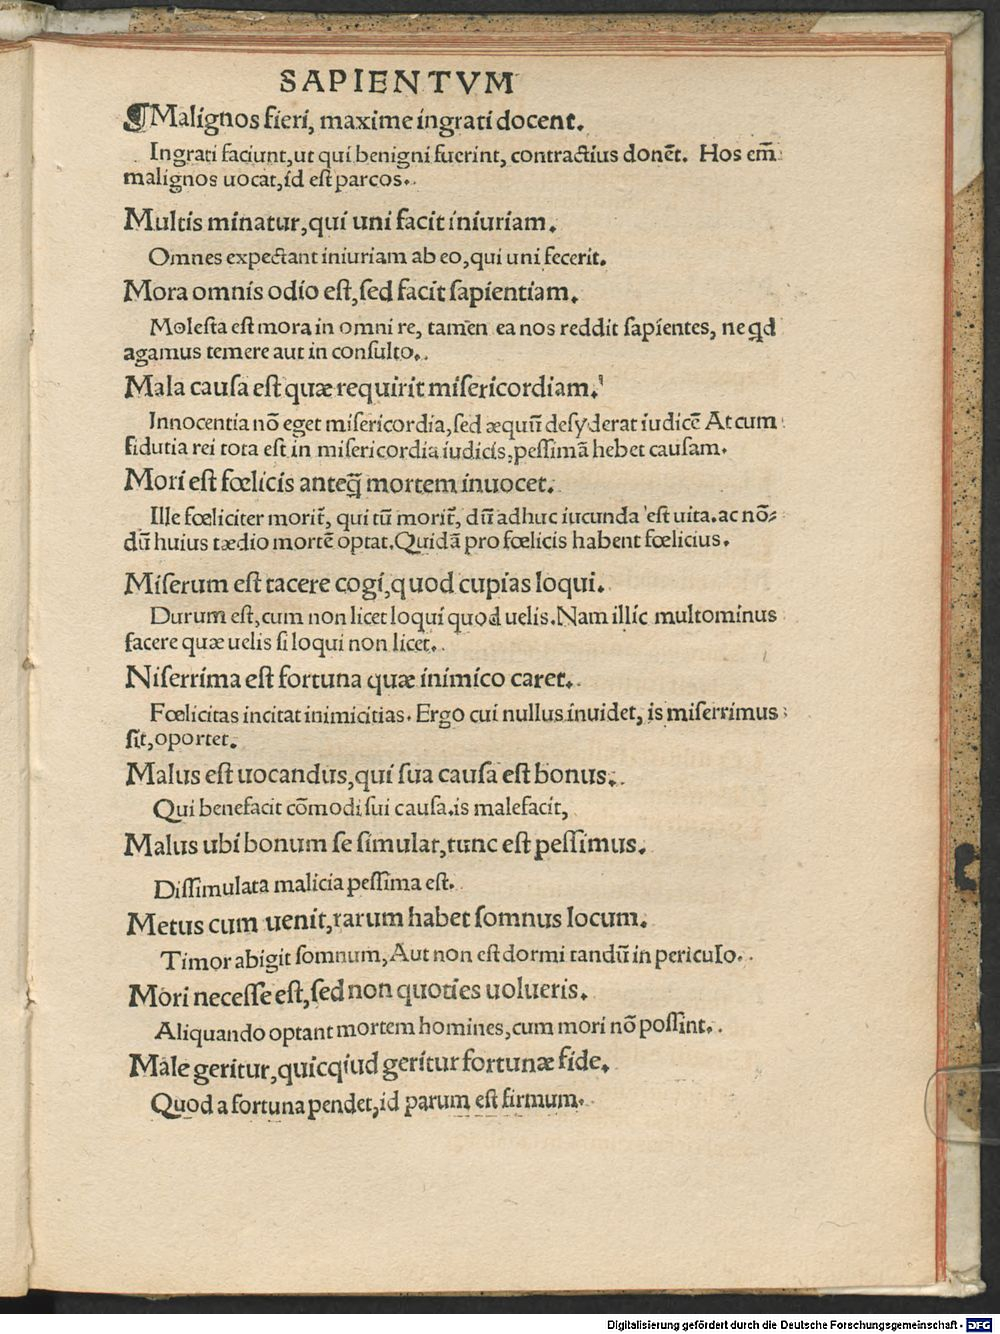 SAPIENTVM
¶Malignos fieri, maxime ingrati docent.
Ingrati faciunt,ut qui benigni fuerint, contractius donēt. Hos em̄
malignos uocat,id eſt parcos.
Multis minatur,qui uni facit iniuriam.
Omnes expectant iniuriam ab eo,qui uni fecerit.
Mora omnis odio eſt,ſed facit ſapientiam.
Moleſta eſt mora in omni re, tamen ea nos reddit ſapientes, ne qd
agamus temere aut in conſulto.
Mala cauſa eſt quæ requirit miſericordiam.
Innocentia nō eget miſericordia,ſed æquū deſyderat iudicē At cum
fidutia rei tota eſt in miſericordia iudicis,peſſimā hebet cauſam.
Mori eſt fœlicis anteq̄ mortem inuocet.
Ille fœliciter morit̄, qui tū morit̄, dū adhuc iucunda eſt uita.ac nō⸗
dū huius tædio mortē optat.Quidā pro fœlicis habent fœlicius.
Miſerum eſt tacere cogi,quod cupias loqui.
Durum eſt,cum non licet loqui quod uelis.Nam illic multominus
facere quæ uelis ſi loqui non licet.
Niſerrima eſt fortuna quæ inimico caret.
Fœlicitas incitat inimicitias. Ergo cui nullus inuidet, is miſerrimus
ſit,oportet.
Malus eſt uocandus,qui ſua cauſa eſt bonus.
Qui benefacit cōmodi ſui cauſa.is malefacit,
Malus ubi bonum ſe ſimulat,tunc eſt peſſimus.
Diſſimulata malicia peſſima eſt.
Metus cum uenit,rarum habet ſomnus locum.
Timor abigit ſomnum,Aut non eſt dormi tandū in periculo.
Mori neceſſe eſt,ſed non quoties uolueris.
Aliquando optant mortem homines,cum mori nō poſſint.
Male geritur,quicqiud geritur fortunæ fide.
Quod a fortuna pendet,id parum eſt firmum.
Digitalisierung gefördert durch die Deutsche Forschungsgemeinschaft - DFG